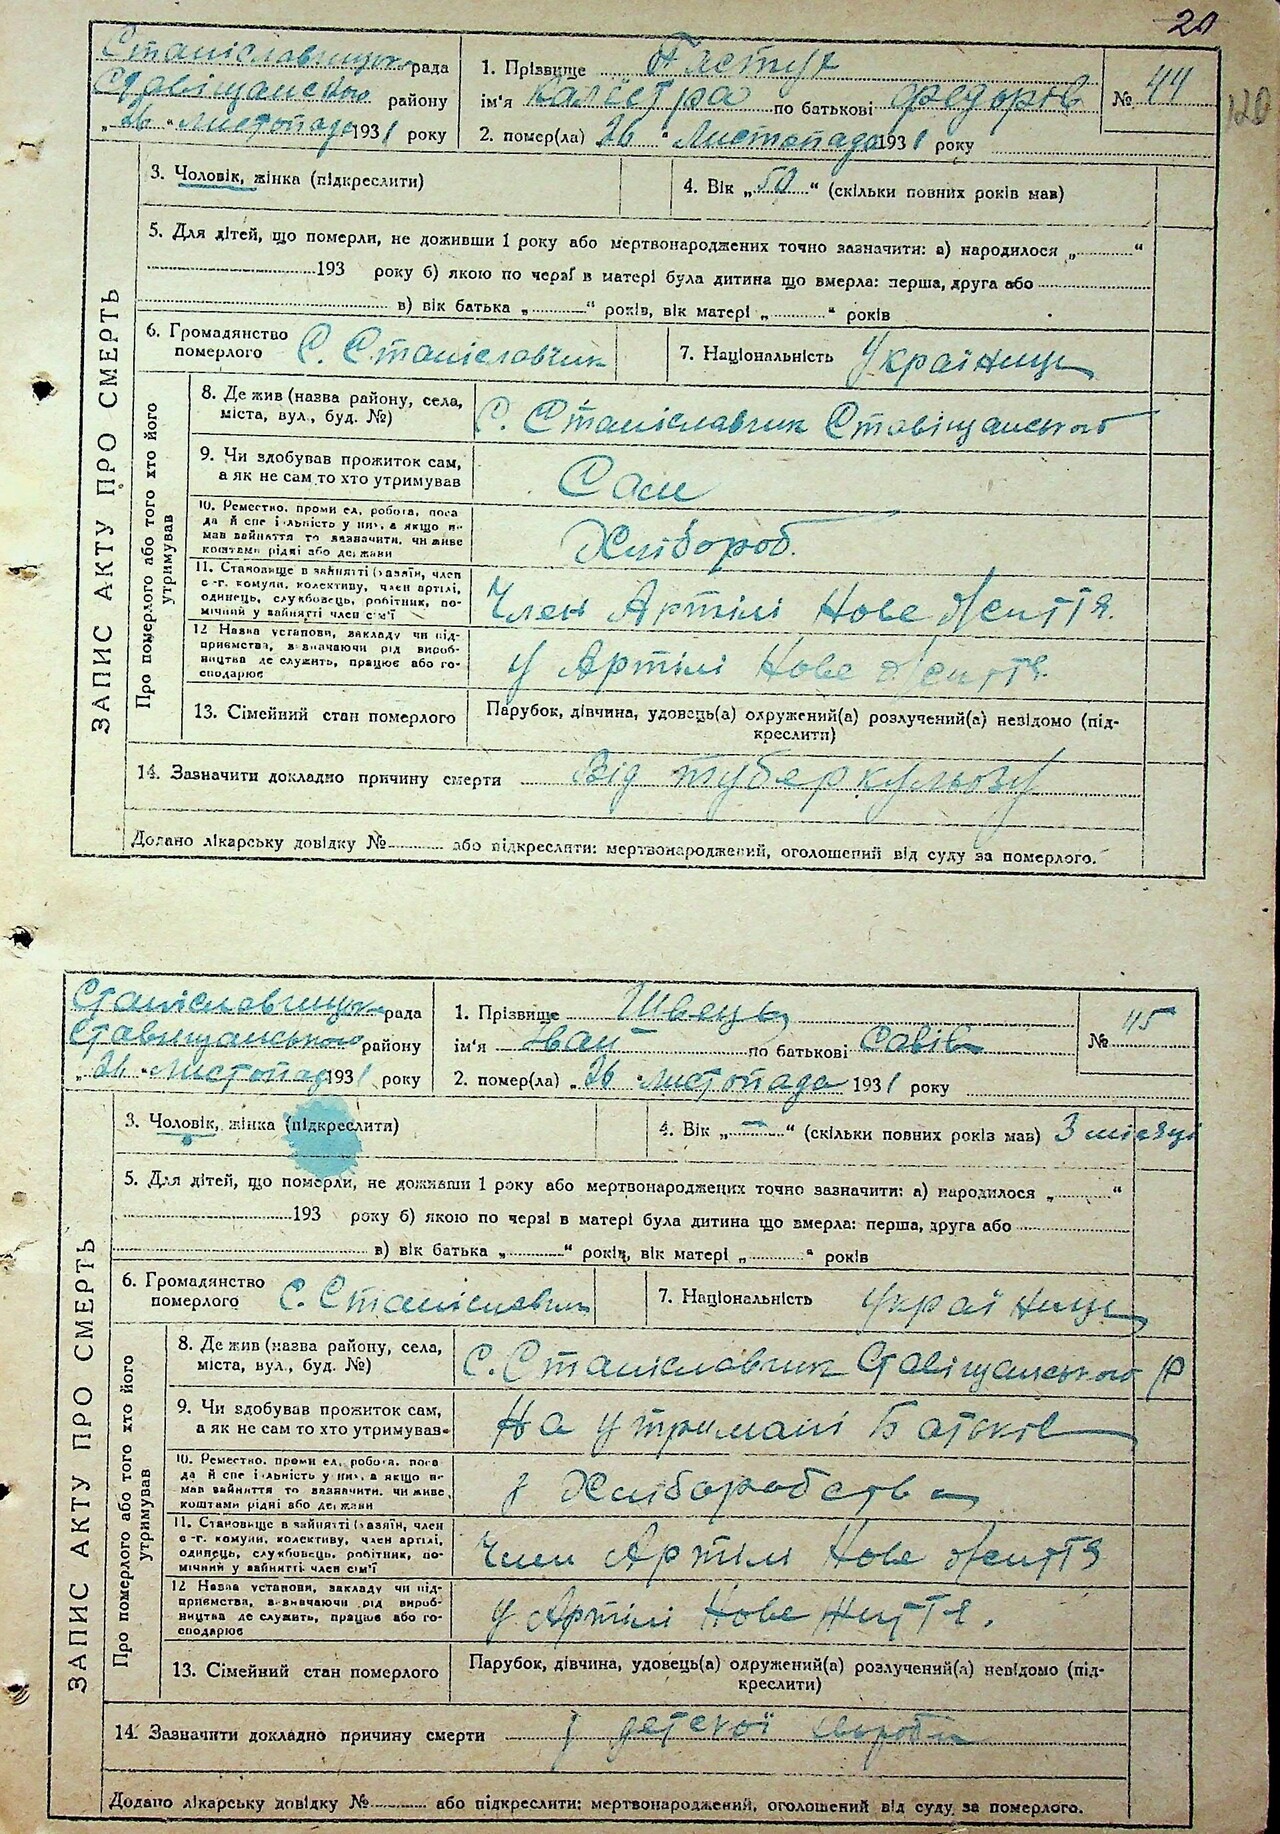 20
120
Станіславчицька рада
Ставіщанського району
„26“ Листопада 1931 року
1. Прізвище Пастух
ім'я Калістра по батькові Федоров
2. помер(ла) 26 “ Листопада 1931 року
№ 44
3. Чоловік, жінка (підкреслити)
4. Вік „50“ (скільки повних років мав)
5. Для дітей, що померли, не доживши 1 року або мертвонароджених точно зазначити: а) народилося „ “
193 року б) якою по черзі в матері була дитина що вмерла: перша, друга або
в) вік батька „ “ років, вік матері „ “ років
6. Громадянство померлого С. Станіславчик
7. Національність Українець
ЗАПИС АКТУ ПРО СМЕРТЬ
Про померлого або того хто його утримував
8. Де жив (назва району, села, міста, вул., буд. №) С. Станіславчик Ставіщанського
9. Чи здобував прожиток сам, а як не сам то хто утримував Сам
10. Ремество, проми ел, робота, поса
да й спе і льність у них, а якщо н-
мав зайняття то зазначити, чи живе
коштами рідні або держави
Хлібороб.
11. Становище в зайнятті (хазяїн, член
с-г. комуни, колективу, член артілі,
одинець, службовець, робітник, по-
мічний у зайнятті член сім'ї
Член Артілі Нове Життя.
12 Назва установи, закладу чи під-
приємства, зазначаючи рід вироб-
ництва де служить, працює або го-
сподарює
у Артілі Нове Життя.
13. Сімейний стан померлого
Парубок, дівчина, удовець(а) одружений(а) розлучений(а) невідомо (під-
креслити)
14. Зазначити докладно причину смерти Від туберкульозу
Додано лікарську довідку № або підкреслити: мертвонароджений, оголошений від суду за померлого.
Станіславчицька рада
Ставищанського району
„26“ Листопад 1931 року
1. Прізвище Швець
ім'я Іван по батькові Савів
2. помер(ла) „26“ Листопада 1931 року
№ 45
3. Чоловік, жінка (підкреслити)
4. Вік „–“ (скільки повних років мав) 3 місяці
5. Для дітей, що померли, не доживши 1 року або мертвонароджених точно зазначити: а) народилося „ “
193 року б) якою по черзі в матері була дитина що вмерла: перша, друга або
в) вік батька „ “ років, вік матері „ “ років
6. Громадянство померлого С. Станіславчик
7. Національність Українець
ЗАПИС АКТУ ПРО СМЕРТЬ
Про померлого або того хто його утримував
8. Де жив (назва району, села, міста, вул., буд. №) С. Станіславчик Ставіщанського р
9. Чи здобував прожиток сам, а як не сам то хто утримував На утримані Батьків
10. Ремество, проми ел, робота, поса
да й спе і льність у них, а якщо н-
мав зайняття то зазначити, чи живе
коштами рідні або держави
з Хліборобства
11. Становище в зайнятті (хазяїн, член
с-г. комуни, колективу, член артілі,
одинець, службовець, робітник, по-
мічний у зайнятті член сім'ї
Член Артілі Нове Життя
12 Назва установи, закладу чи під-
приємства, зазначаючи рід вироб-
ництва де служить, працює або го-
сподарює
у Артілі Нове Життя.
13. Сімейний стан померлого
Парубок, дівчина, удовець(а) одружений(а) розлучений(а) невідомо (під-
креслити)
14. Зазначити докладно причину смерти з детской хвороби
Додано лікарську довідку № або підкреслити: мертвонароджений, оголошений від суду за померлого.